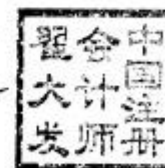 中国注册
会计师
翟大发